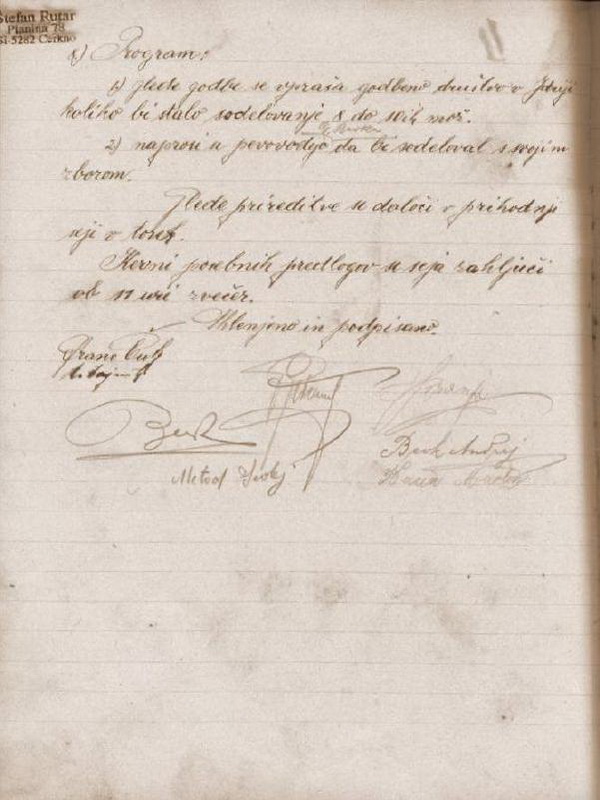 Štefan Rutar
Planina 78
SI-5282 Cerkno
Program:
1) glede godbe se vpraša godbeno društvo v Idriji
koliko bi stalo sodelovanje 8 do 10ih mož.
2) naprosi se pevovodjo da bi sodeloval s svojim
zborom.
Glede prireditve se določi v prihodnji
seji v torek.
Ker ni posebnih predlogov se seja zaključi
ob 11 uri zvečer.
Sklenjeno in podpisano.
Franc
Beuk
Metod
Beuk Andrej